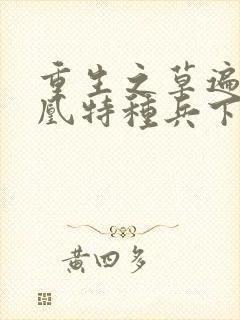 重生之草遍
凰特種兵下
黃四多